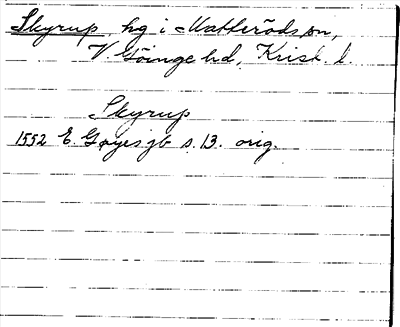 Skyrup hg i Matteröds sn,
V. Göinge hd, Krist. l.
Skyrup
1552 E. Gøyes jb s. 13. orig.